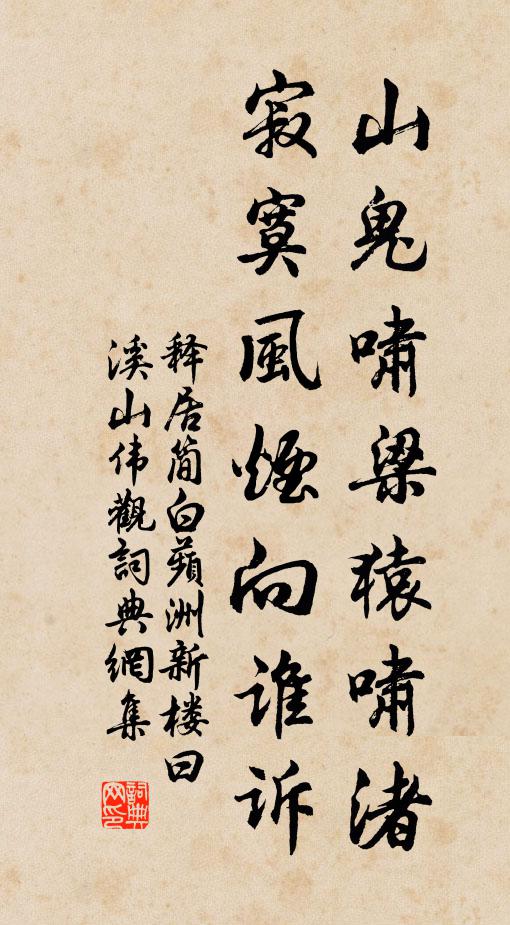 山鬼啸梁猿啸渚
寂寞風煙向谁诉
释居简白蘋洲新楼曰
溪山伟觀詞典網集
詞典网印